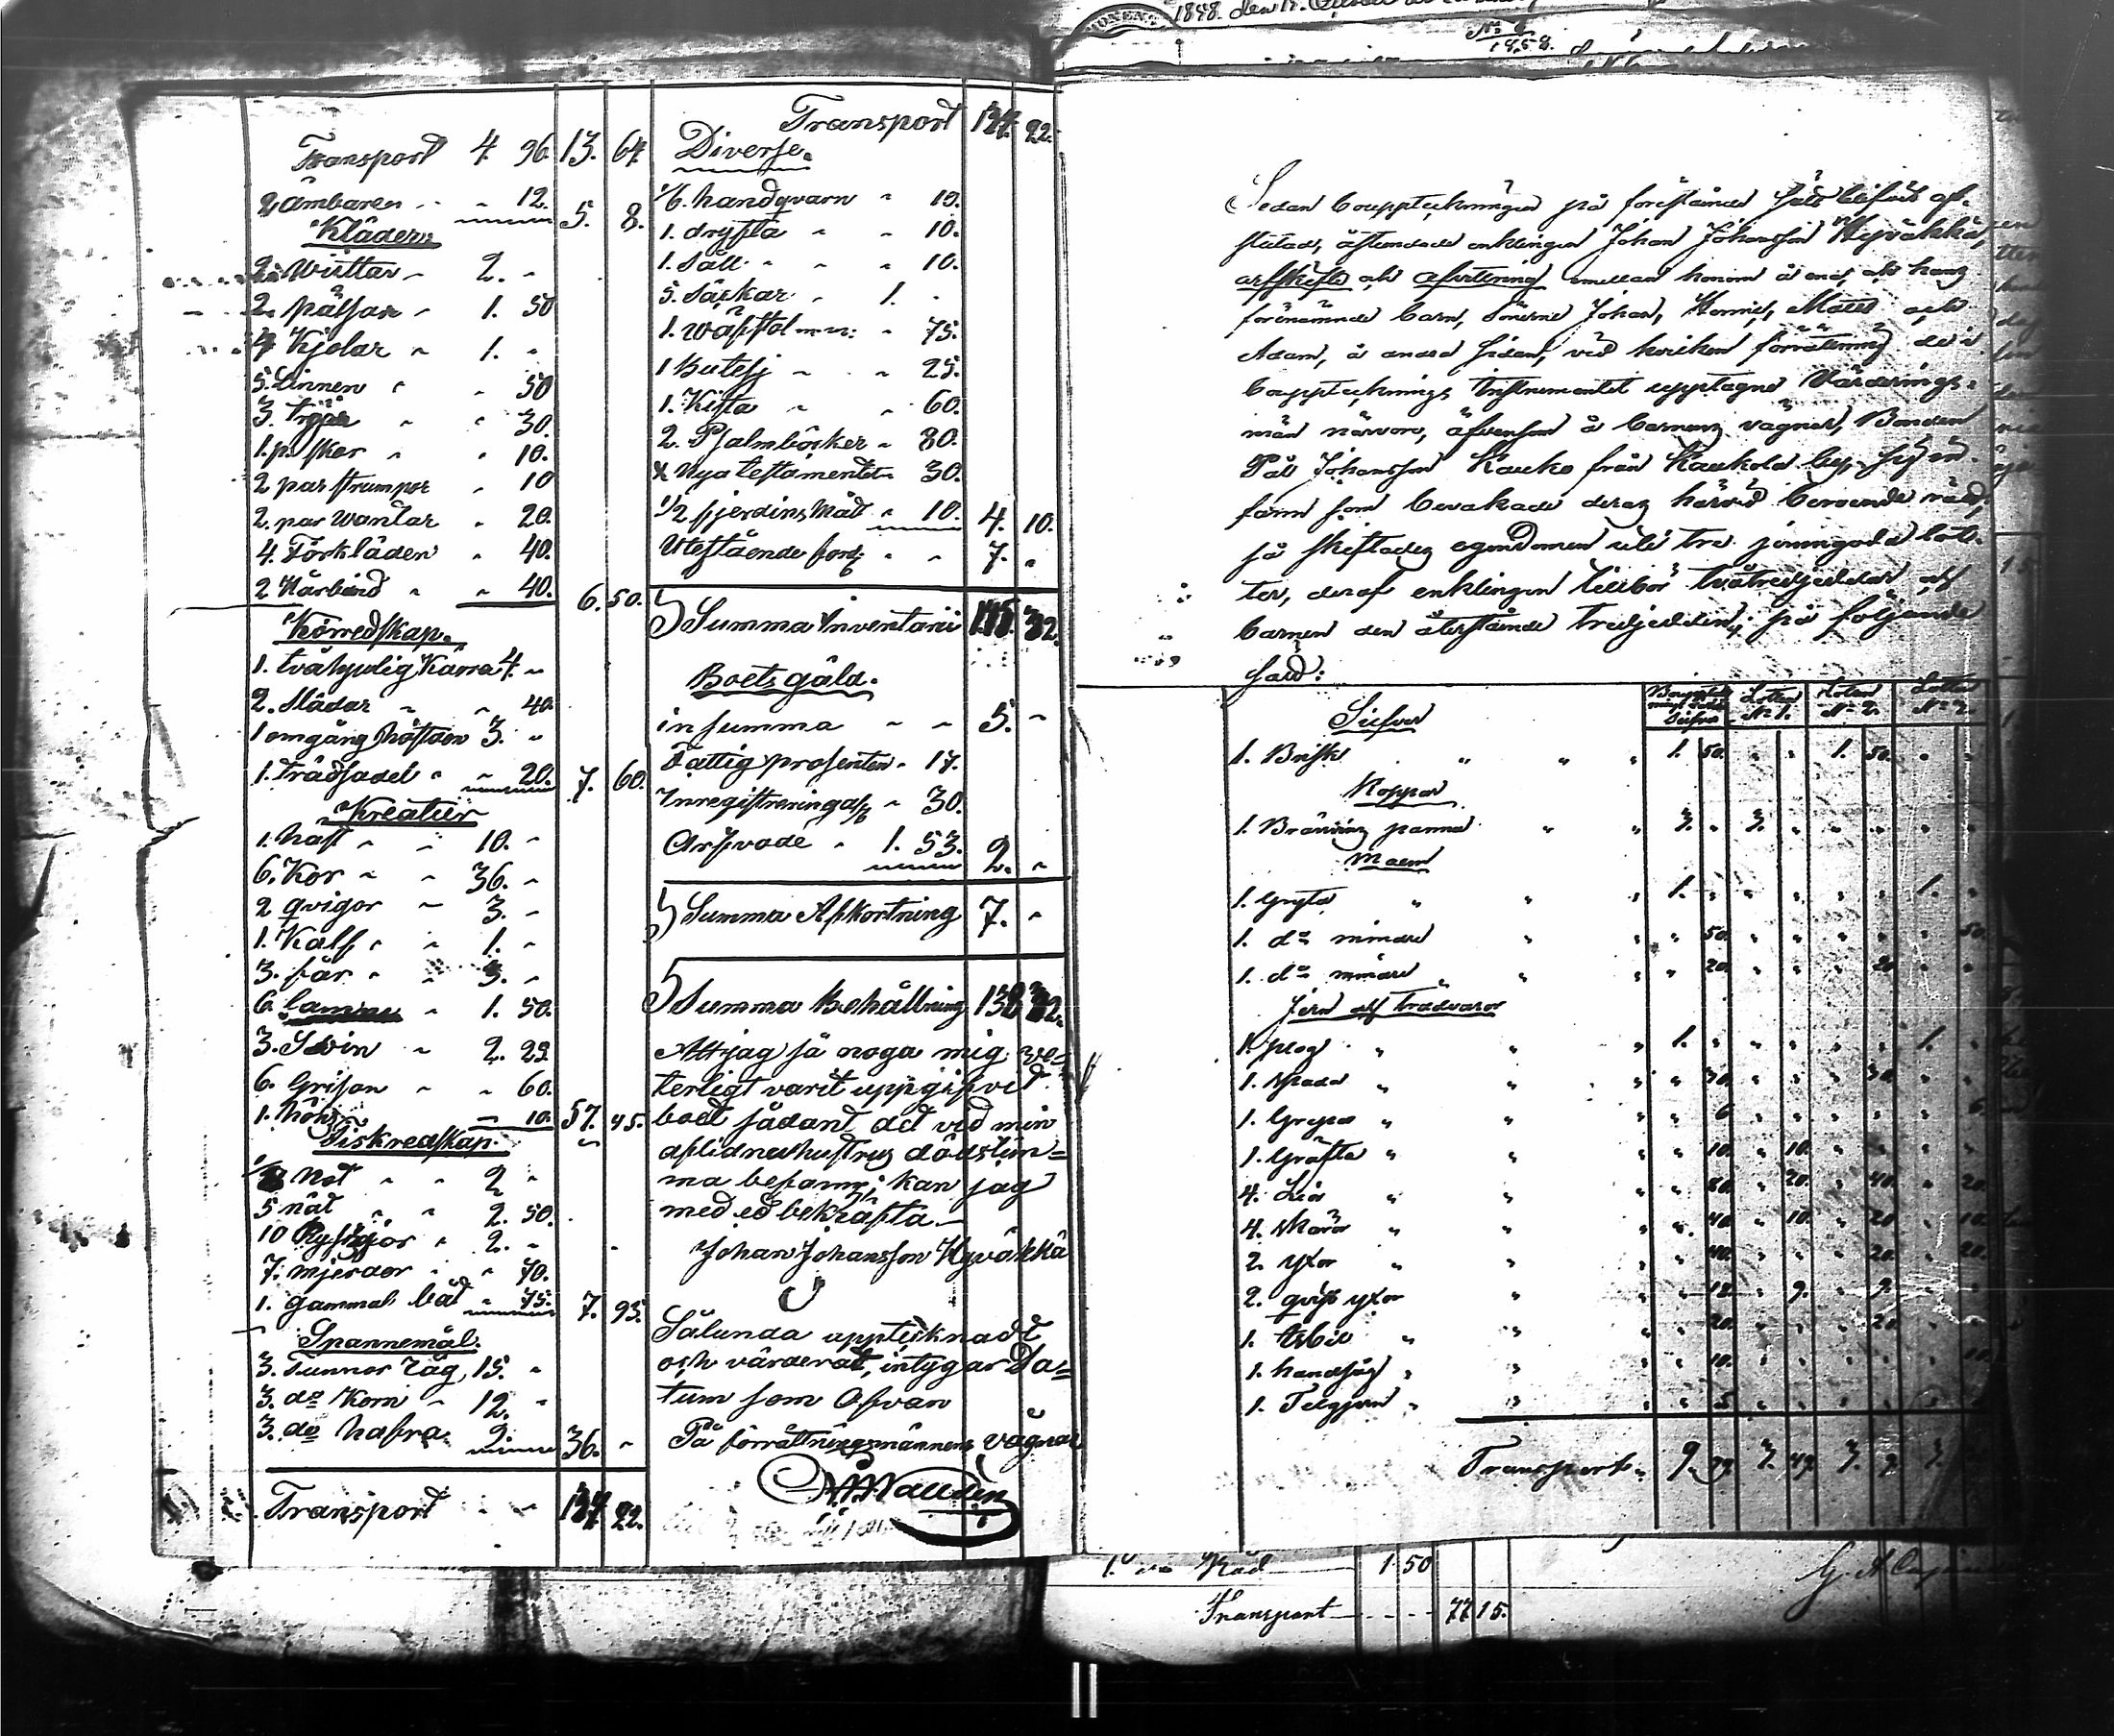 1848. den
No 6
1858.
Transport 4. 96. 13. 64
2 Ämbaren " " 12. 5. 8.
Kläder
2. Wüttar " 2. "
2. pälsar " 1. 50
4 Kjolar " 1. "
5. linnen " " 50
3. tröjor " " 30.
1. p. skor " " 10.
2 par strumpor " 10
2. par wantar " 20.
4. Förkläden " 40.
2 Hårband " " 40. 6. 50.
Körredskap.
1. tvåhjulig Karra 4. "
2. Slädar " " 40.
1 omgång höftson 3. "
1. trädsadel " " 20. 7. 60.
Kreatur
1. häst " " 10. "
6. Kor " " 36. "
2 qvigor " 3. "
1. Kalf " " 1. "
3. får " " 3. "
6. lamm " 1. 50.
3. Swin " 2. 25
6. Grisar " " 60.
1. höns " 10. 57. 45.
Fiskredskap.
Not " " 2 "
5 nät " " 2. 50.
10 Rysjor " 2. "
7. mjerdor " " 70.
1. gammal båt " 75. 7. 95.
Spannemål.
3. Tunnor råg, 15. "
3. do Korn " 12. "
3. do hafra 9. 36. "
Transport " " 134 22.
Transport 134 22.
Diverse.
1/6. handqvarn " 10.
1. drysta " " 10.
1. såll " " " 10.
5. Säckar " 1. "
1. wäfstol " 75.
1 Butelj " " 25.
1. Kista " " 60.
2. Psalmböcker " 80.
Nya testamentet " 30.
1/2 fjerdings Mått " 10. 4. 10.
Utestående ford. " " 7. "
Summa Inventarii 145. 32.
Boets gäld.
in summa " " 5. "
Fattig prosenten " 17.
Inregistrering " 30.
Arfvode " 1. 53. 2. "
Summa Afkortning 7. "
Summa Behållning 138 32.
Att jag så noga mig ve=
terligt varit uppgifvit
boet sådant det vid min
aflidna hustrus dödstim=
ma befanns, kan jag
med ed bekräfta.
Johan Johansson Hyväkkä
Sålunda upptecknadt
och värderat, intygar Da=
tum som ofvan
På förrättningsmännens vägnar
Sedan bouppteckningen på förestående sätt blifvit af-
slutad, åstundade enklingen Johan Johansson Hyväkkä,
arfskifte och afvittring emellan honom å ena, och hans
förenämnde barn, sönerne Johan, Matts och
Adam, å andra sidan, vid hvilken förrättning de i
bouppteknings Instrumentet upptagne Värderings-
män närvoro, äfvensom å barnens vägnar, Bonden
Påll Johansson Kaukola by
som bevakade deras härvid beroende rätt,
så skiftades egendomen uti tre jemngoda lot-
ter, deraf enklingen tillkom tvåtredjedelar, och
barnen den återstående tredjedelen, på följande
sätt:
Silfver Lotten No 1. Lotten No 2. Lotten
1. Brisk " " " 1. 50. " " 1. 50. " "
Koppar
1. Brännvins panna " " 3. " 3. " " " " "
Malm
1. Gryta " " " 1. " " " " " 1. "
1. do mindre " " " 50. " " " " " 50.
1. do mindre " " " 20. " " " 20 " "
Jern och trädvaror
1. plog " " " 1. " " " " " 1. "
1. Spada " " " " 30. " " " 30. " "
1. Grepa " " " " 6. " " " " " 6.
1. Gräfta " " " " 10. " 10. " " " "
4. Liar " " " 80. " 20. " 40. " 20.
4. Skäror " " " 40. " 10. " 20 " 10.
2. yxor " " " 40. " " " 20. " 20.
2. qvist yxor " " 18. " 9. " 9. " "
1. " " " 20. " " " 20. " "
1. handsåg " " " 10. " " " " " 10.
1. Teljern " " " " 5. " " " " "
Transport. 9. 79. 3. 49. 3. 9. 3.
1 50
Transport 77 15.